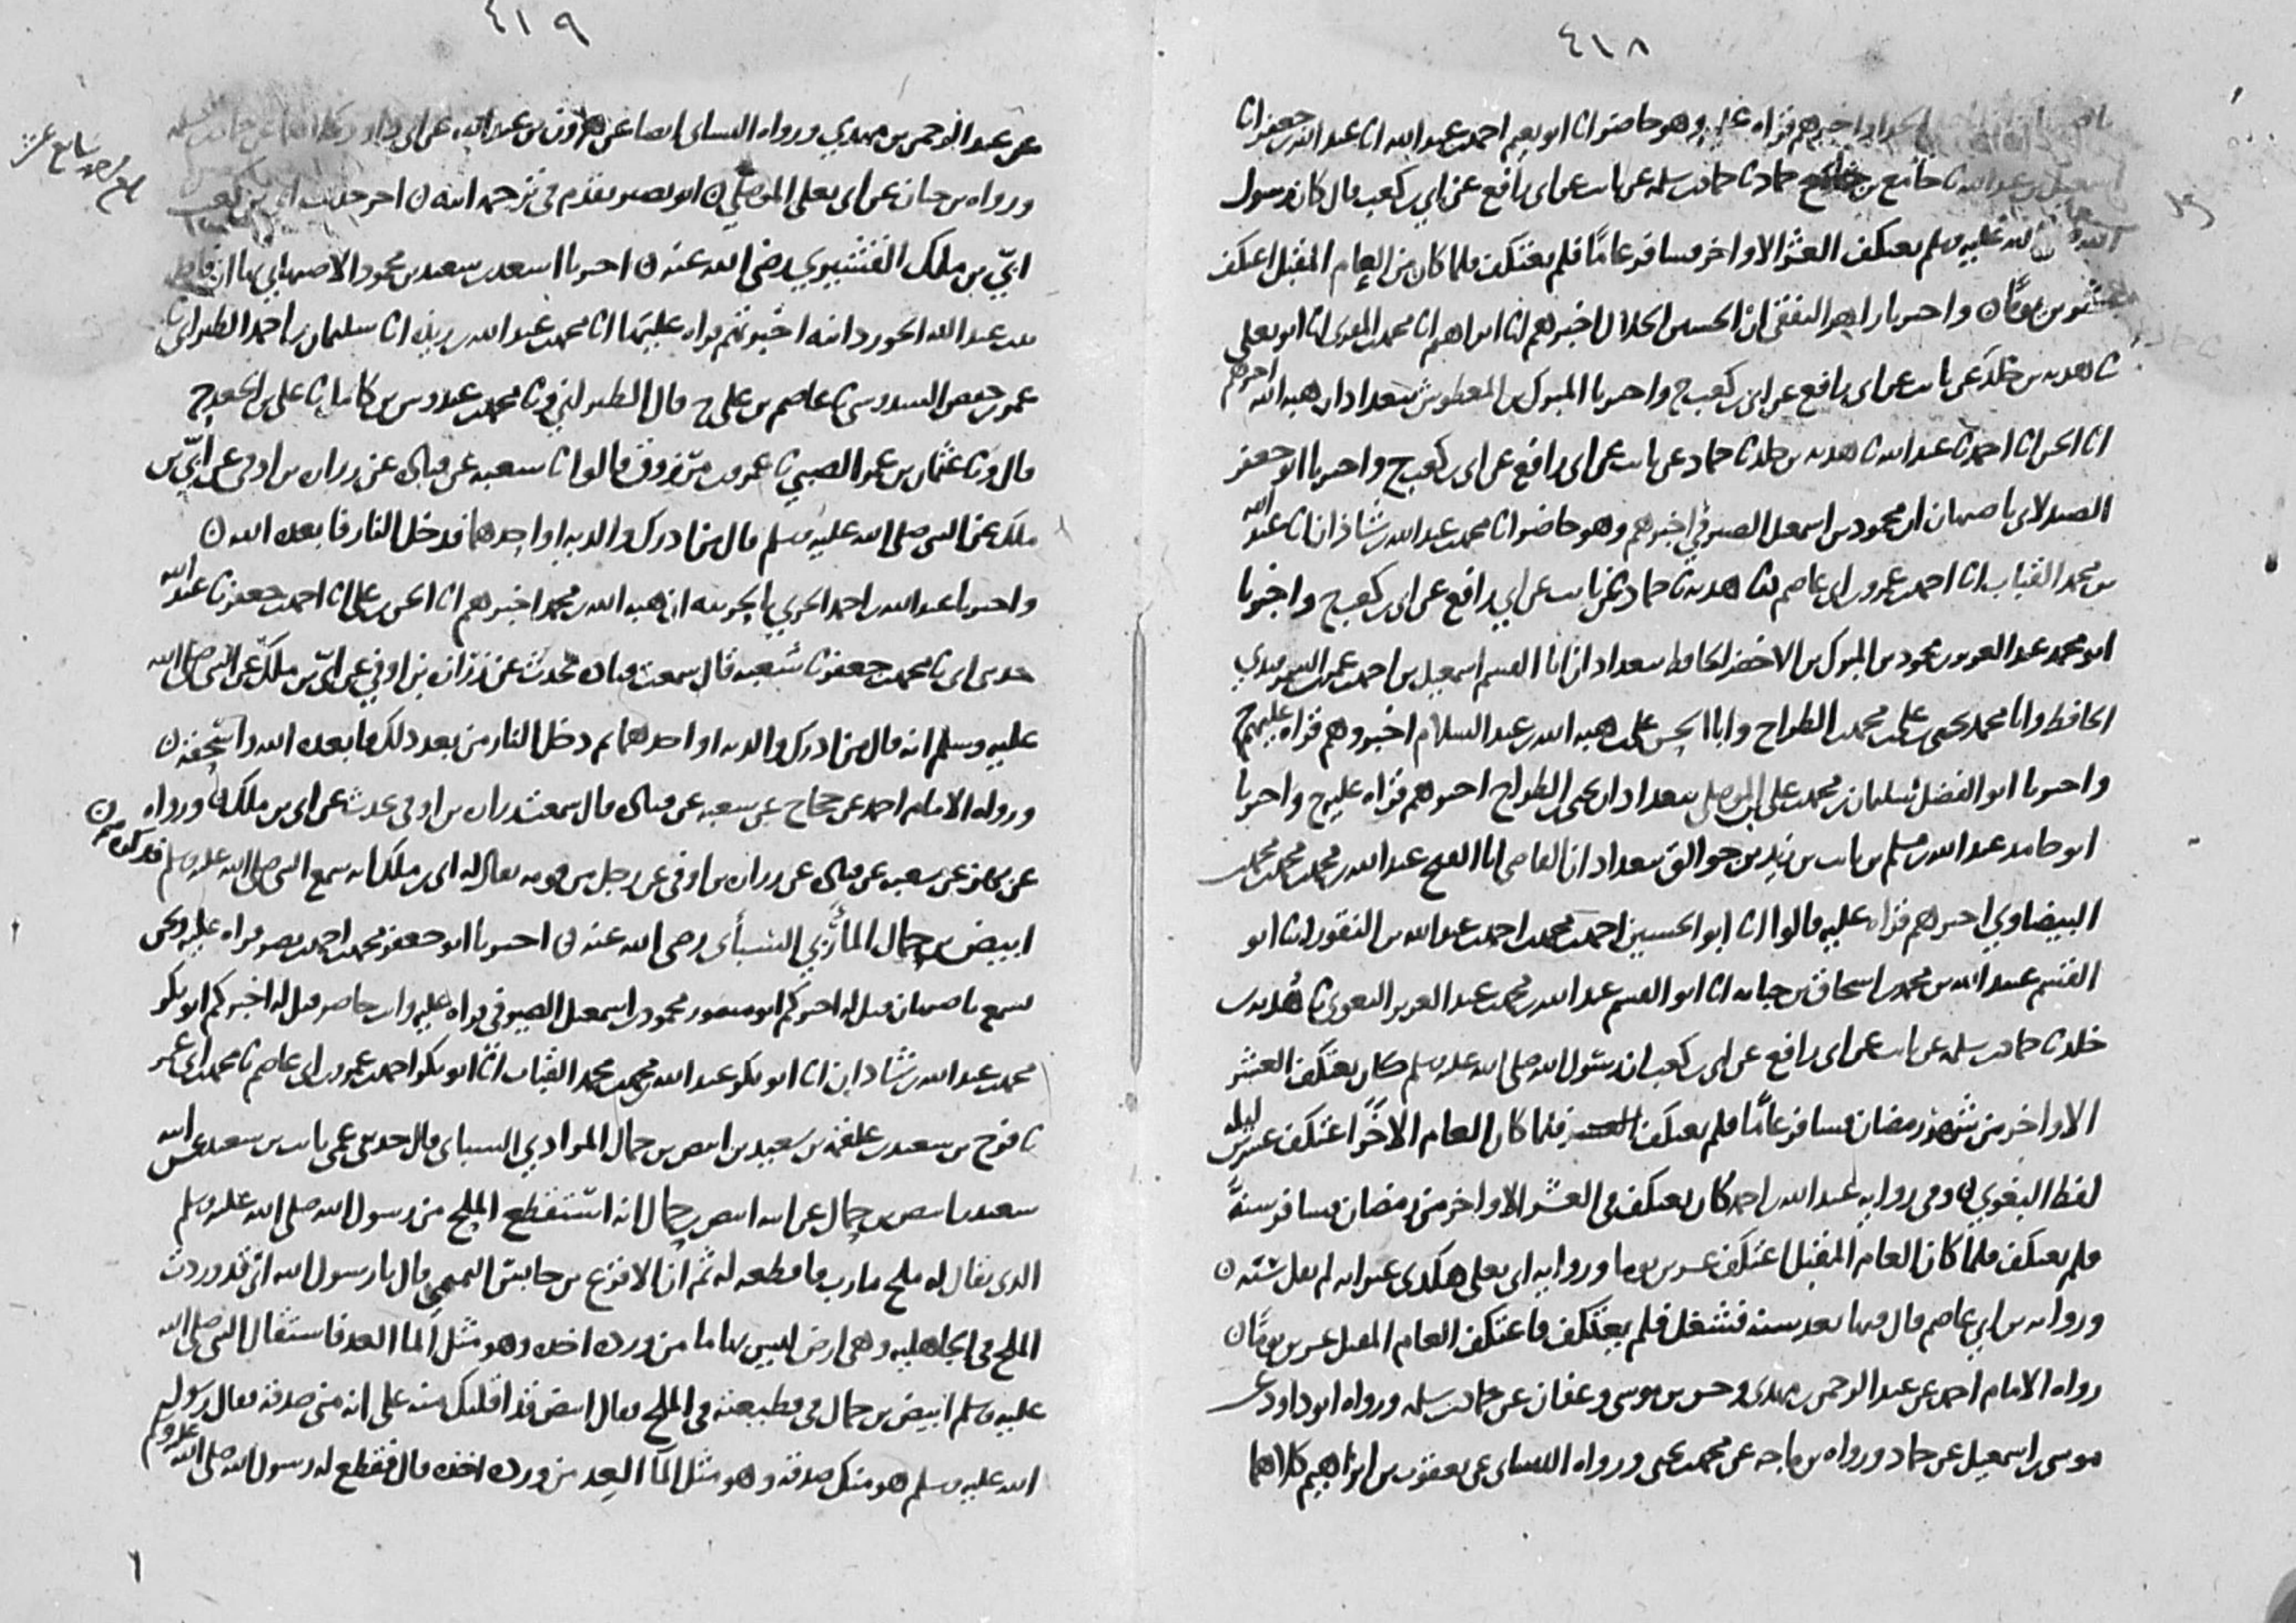 ٤١٨
الحداد اخبرهم قراه عليه وهو حاضر انا ابو نعيم احمد بن عبد الله انا عبد الله بن جعفر انا
اسمعيل بن عبد الله حماد نا حماد بن سلمه عن ثابت عن ابي رافع عن ابي بن كعب قال كان رسول
الله صلى الله عليه وسلم يعتكف العشر الاواخر فسافر عاما فلم يعتكف فلما كان من العام المقبل اعتكف
عشرين يوما ن واخبرنا زاهر الثقفي ان الحسين الخلال اخبرهم انا ابراهيم انا محمد بن المقرى انا ابو يعلى
نا هدبه بن خلد عن ثابت عن ابي رافع عن ابي بن كعب ح واخبرنا المبرك بن المعطوش ببغداد ان هبه الله اخبرهم
انا الحسن انا احمد نا عبد الله نا هدبه بن خلد نا حماد عن ثابت عن ابي رافع عن ابي بن كعب ح واخبرنا ابو جعفر
الصيدلاني باصبهان ان محمود بن اسمعيل الصيرفي اخبرهم وهو حاضر انا محمد بن عبد الله بن شاذان انا عبد الله
بن محمد القباب انا احمد بن عمرو بن ابي عاصم نا هدبه نا حماد عن ثابت عن ابي رافع عن ابي بن كعب ح واخبرنا
ابو محمد عبد العزيز بن محمود بن المبرك بن الاخضر الحافظ ببغداد ان ابا القسم اسمعيل بن احمد بن عمر السمرقندي
الحافظ وابا محمد يحيى بن علي بن محمد بن الطراح وابا الحسن علي بن هبه الله بن عبد السلام اخبروهم قراه عليهم ح
واخبرنا ابو الفضل سليمان بن محمد بن علي الموصلي ببغداد ان يحيى بن الطراح اخبرهم قراه عليه ح واخبرنا
ابو حامد عبد الله بن مسلم بن ثابت بن زيد بن جوالق ببغداد ان القاضي ابا الفتح عبد الله بن محمد بن محمد بن محمد
البيضاوي اخبرهم قراه عليه قالوا انا ابو الحسين احمد بن محمد بن احمد بن عبد الله بن النقور انا ابو
القسم عبيد الله بن محمد بن اسحاق بن حبابه انا ابو القسم عبد الله بن محمد بن عبد العزيز البغوي نا هدبه بن
خلد نا حماد بن سلمه عن ثابت عن ابي رافع عن ابي بن كعب ان رسول الله صلى الله عليه وسلم كان يعتكف العشر
الاواخر من شهر رمضان فسافر عاما فلم يعتكف فلما كان العام الاخر اعتكف عشرين ليله
لفظ البغوي ن وفي روايه عبد الله بن احمد كان يعتكف في العشر الاواخر من رمضان فسافر سنة
فلم يعتكف فلما كان العام المقبل اعتكف عشرين يوما وروايه ابي يعلى هكذى غير انه لم يقل سنه ن
وروايه بن ابي عاصم قال فيها بعد سنه فشغل فلم يعتكف فاعتكف العام المقبل عشرين يوما ن
رواه الامام احمد عن عبد الرحمن بن مهدي وحسن بن موسى وعفان عن حماد بن سلمه ورواه ابو داود عن
موسى بن اسمعيل عن حماد ورواه بن ماجه عن محمد بن يحيى ورواه النساى عن يعقوب بن ابراهيم كلاهما
٤١٩
عن عبد الرحمن بن مهدي ورواه النساى ايضا عن هارون بن عبد الله عن ابي داود
ورواه بن حبان عن ابي يعلى الموصلي ن ابو بصير تقدم في ترجمه ابنه ن اخر حديث ابي بن كعب
ابي بن ملك القشيري رضي الله عنه ن اخبرنا اسعد بن سعيد بن محمود الاصبهاني بها ان فاطمه
بنت عبد الله الجوزدانيه اخبرتهم قراه عليها انا محمد بن عبد الله بن ريذه انا سليمان بن احمد الطبراني نا
عمر بن حفص السدوسي نا عاصم بن علي ح قال الطبراني ونا محمد بن عبدوس بن كامل نا علي بن الجعد ح
قال ونا عثمان بن عمر الضبي نا عمرو بن مرزوق قالوا نا شعبه عن قتاده عن زراره بن اوفى عن ابي بن
ملك عن النبي صلى الله عليه وسلم قال من ادرك والديه او احدهما فدخل النار فابعده الله ن
واخبرنا عبد الله بن احمد الحربي بالحربيه ان هبه الله بن محمد اخبرهم انا الحسن بن علي انا احمد بن جعفر نا عبد الله
حدثني ابي نا محمد بن جعفر نا شعبه قال سمعت قتاده يحدث عن زراره بن اوفى عن ابي بن ملك عن النبي صلى الله
عليه وسلم انه قال من ادرك والديه او احدهما ثم دخل النار من بعد ذلك فابعده الله واسحقه ن
ورواه الامام احمد عن حجاج عن شعبه عن قتاده قال سمعت زراره بن اوفى يحدث عن ابي بن ملك ن ورواه
عن بهز عن شعبه عن قتاده عن زراره بن اوفى عن رجل من قومه يقال له ابي بن ملك انه سمع النبي صلى الله عليه وسلم فذكره ن
ابيض بن حمال المأربي السبأى رضي الله عنه ن اخبرنا ابو جعفر محمد بن احمد بن نصر قراه عليه ونحن
نسمع باصبهان قيل له اخبركم ابو منصور محمود بن اسمعيل الصيرفي قراه عليه وانت حاضر قيل له اخبركم ابو بكر
محمد بن عبد الله بن شاذان انا ابو بكر عبد الله بن محمد بن محمد القباب انا ابو بكر احمد بن عمرو بن ابي عاصم نا محمد بن ابي عمر
نا فرج بن سعيد بن علقمه بن سعيد بن ابيض بن حمال المرادي السباى قال حدثني عمي ثابت بن سعيد عن ابيه
سعيد بن ابيض بن حمال عن ابيه ابيض بن حمال انه استقطع الملح من رسول الله صلى الله عليه وسلم
الذي يقال له ملح مارب فاقطعه له ثم ان الاقرع بن حابس التميمي قال يا رسول الله اني قد وردت
الملح في الجاهليه وهي ارض ليس بها ما من ورده اخذه وهو مثل الما العد فاستقال النبي صلى الله
عليه وسلم ابيض بن حمال في قطيعته في الملح فقال ابيض قد اقلتك منه على انه مني صدقه فقال رسول
الله عليه وسلم هو منك صدقه وهو مثل الما العد من ورده اخذه قال فقطع له رسول الله صلى الله عليه وسلم